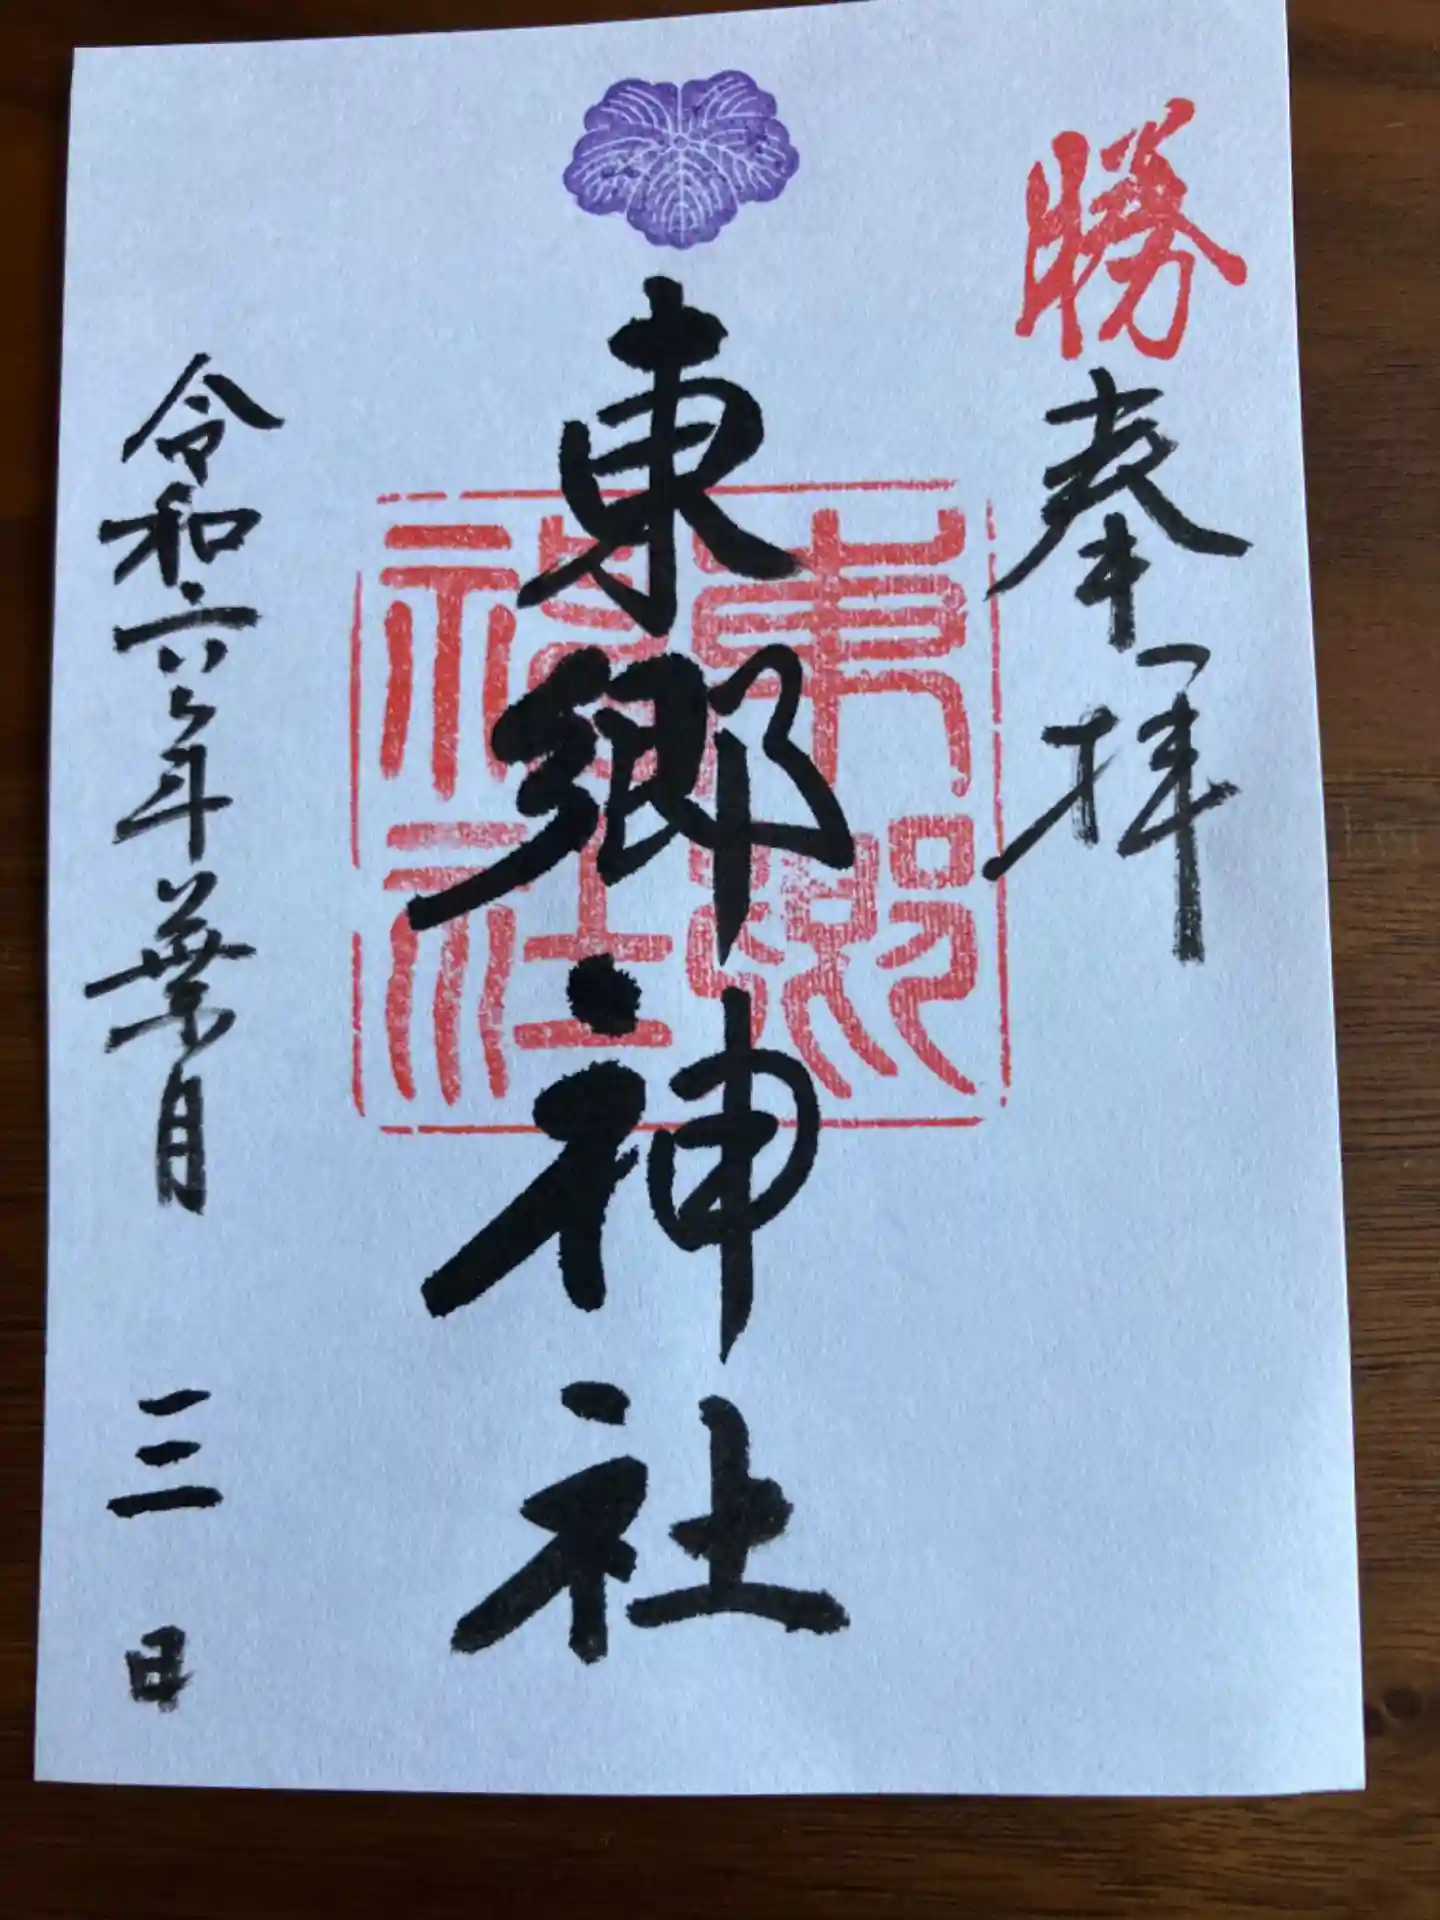 勝
奉拝
東郷神社
東郷神社
令和六年葉月三日